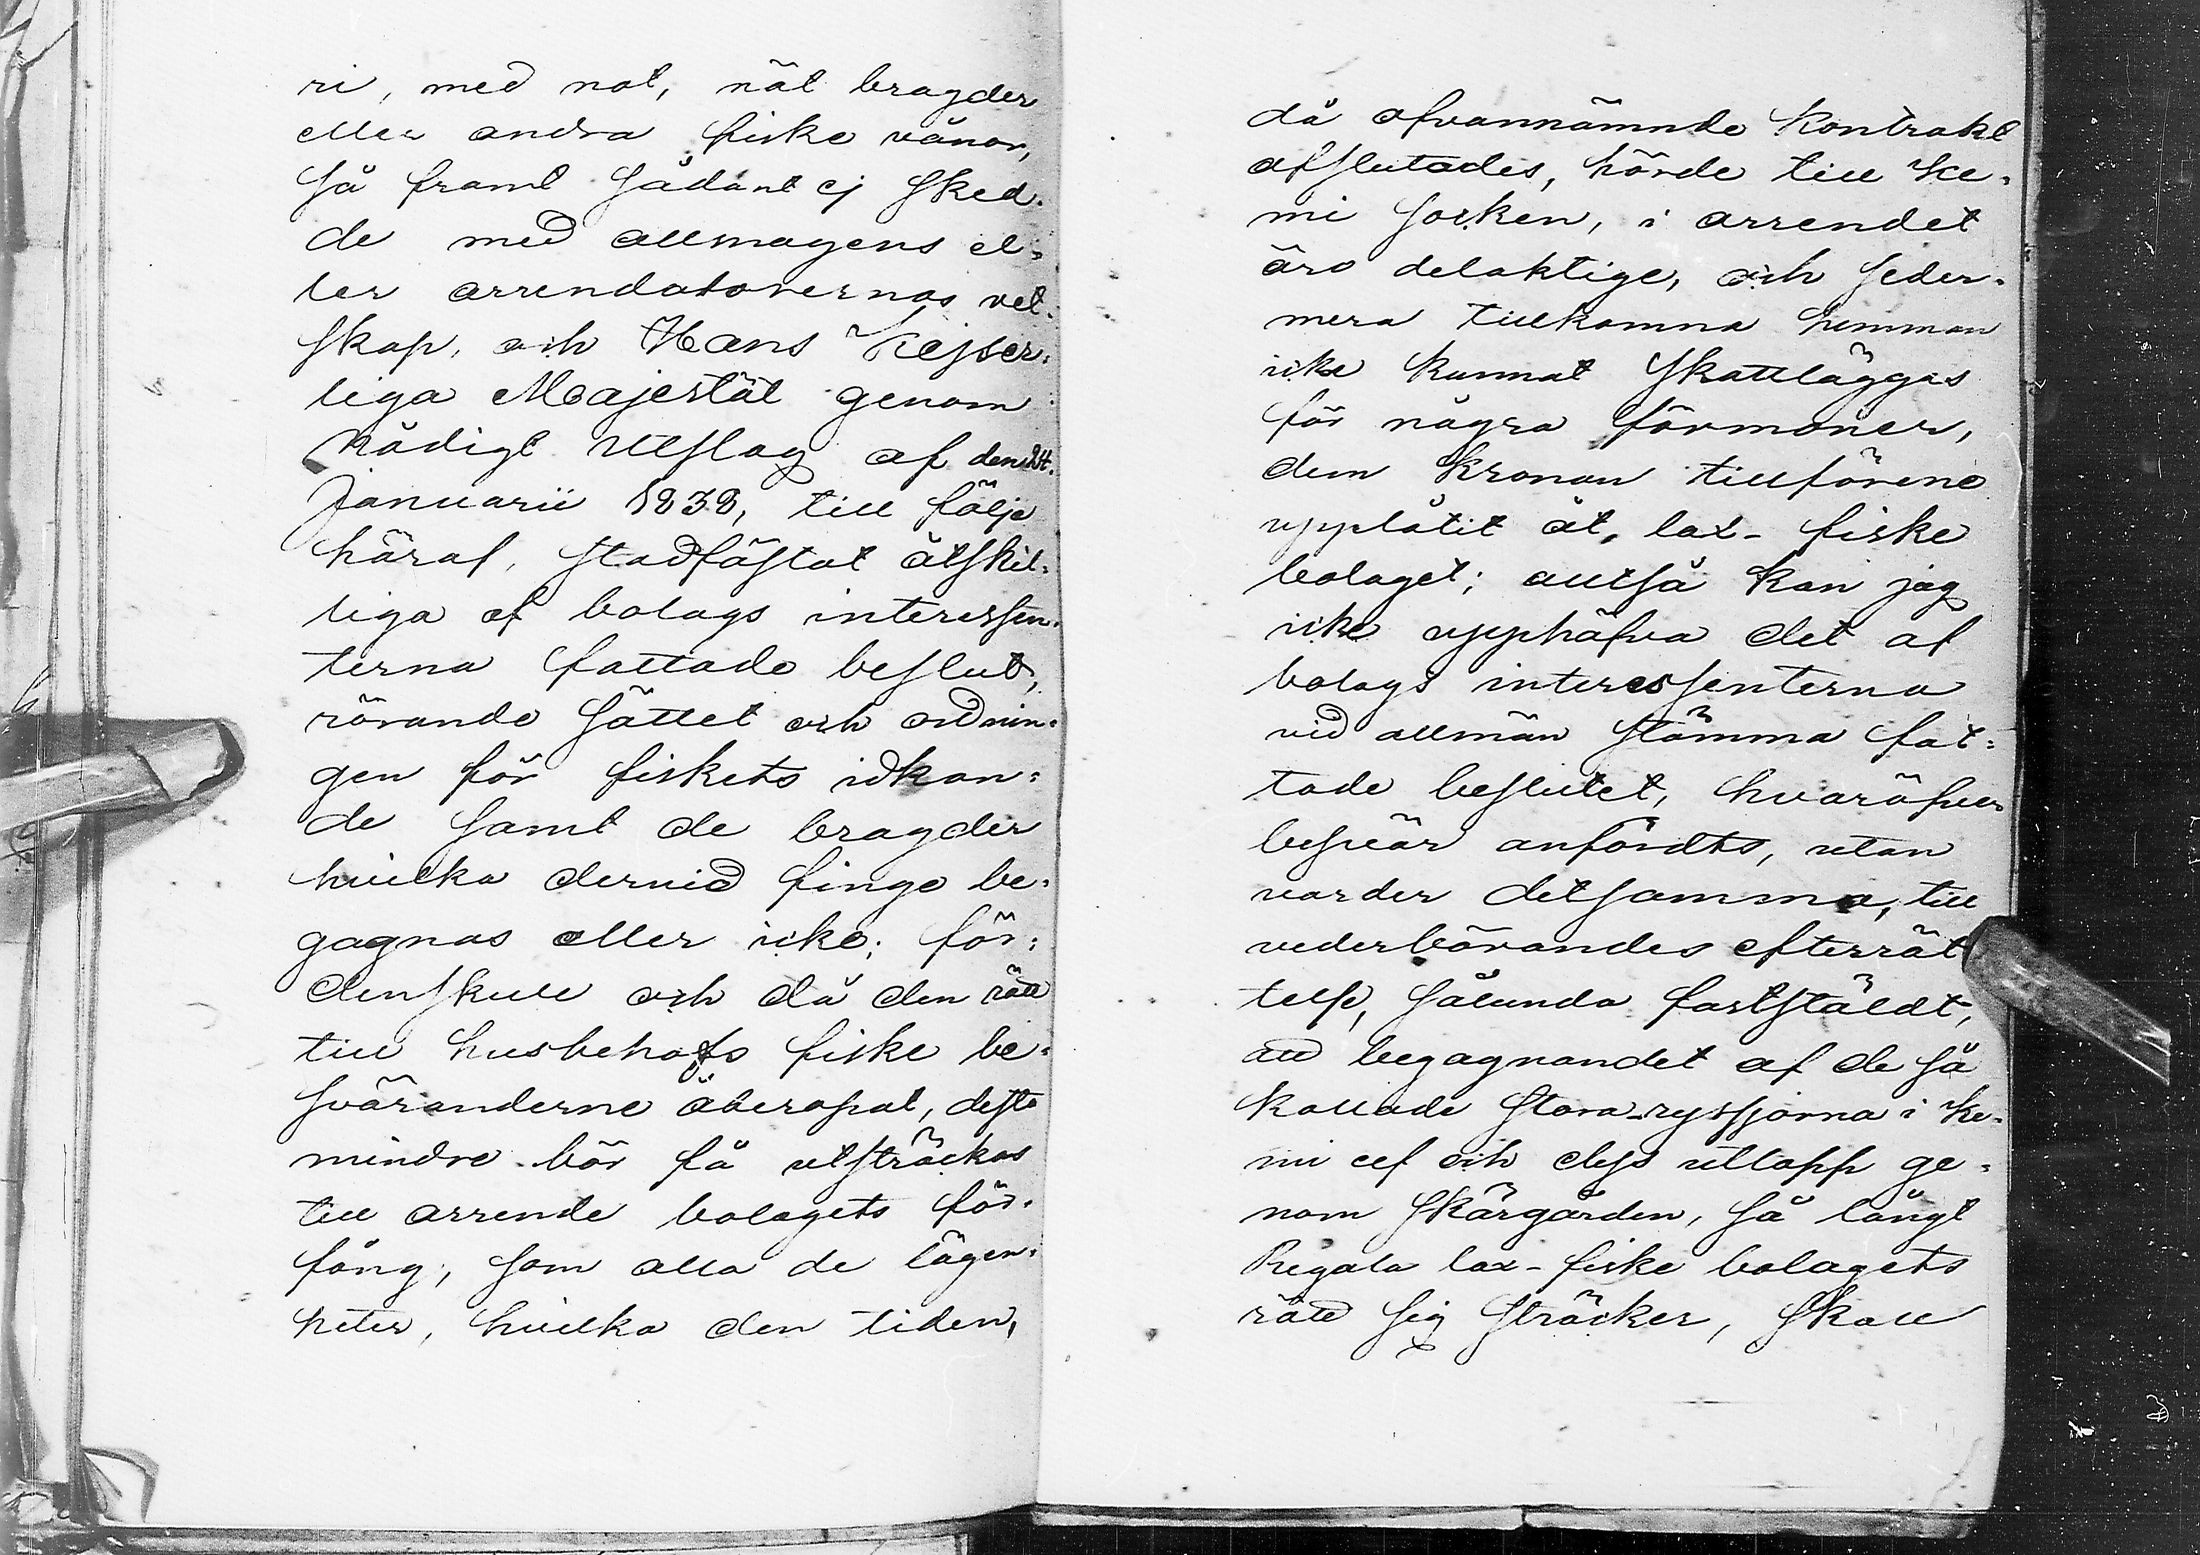 ri, med not, nät bragder
eller andra fiske vånor,
så framt sådant ej sked-
de med allmogens el-
ler arrendatorernas vet-
skap, och Hans Kejser-
liga Majestät genom
Nådigt utslag af den 24.
Januarii 1838, till följe
häraf, stadfästat åtskil-
liga af bolags interessen-
terna fattade beslut,
rörande sättet och ordnin-
gen för fiskets idkan-
de samt de bragder
hvilka dervid finge be-
gagnas eller icke; för-
denskull och då den rätt
till husbehofs fiske be-
svöranderne åberopat, desto
mindre bör få utsträckas
till arrende bolagets för-
fång, som alla de lägen-
heter, hvilka den tiden,
då ofvannämnde Kontrakt
afslutades, hörde till Ke-
mi socken, i arrendet
äro delaktige, och seder-
mera tillkomna hemman
icke kunnat skattläggas
för några förmoner,
dem Kronan tillförene
upplåtit åt, lax-fiske
bolaget; alltså kan jag
icke upphäfva det af
bolags interessenterna
vid allmän stämma fat-
tade beslutet, hvaröfver
besvär anfördts, utan
varder detsamma, till
vederbörandes efterrät
telse, sålunda fastställdt,
att begagnandet af de så
kallade stora-ryssjorna i Ke-
mi elf och dess utlopp ge-
nom skärgården, så långt
Regala lax-fiske bolagets
rätt sig sträcker, skall